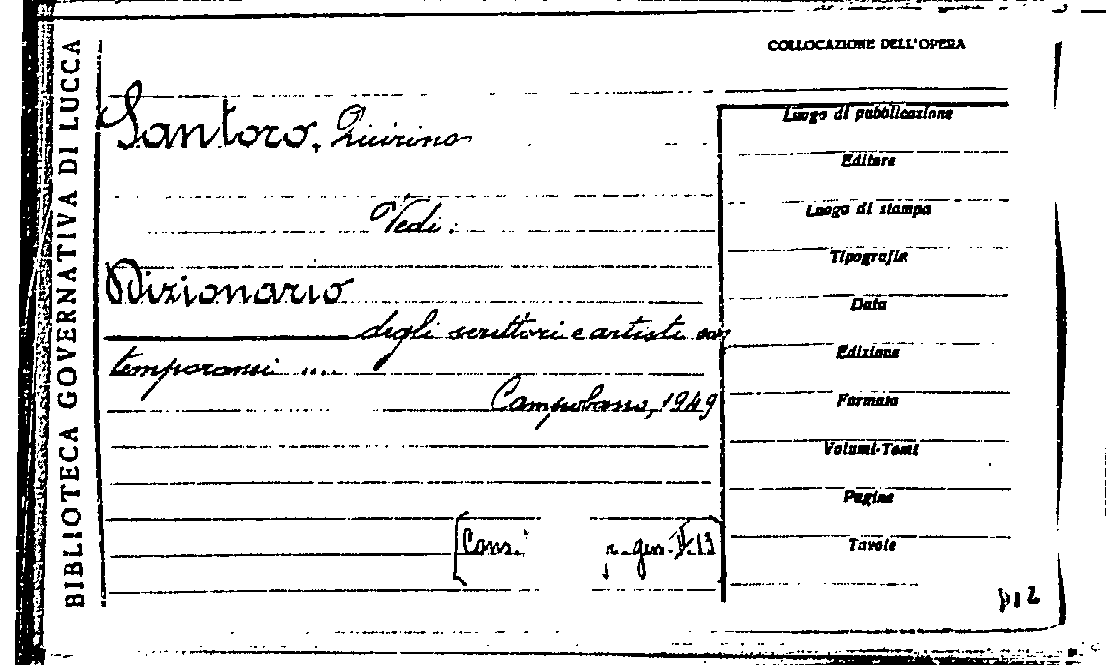 BIBLIOTECA GOVERNATIVA DI LUCCA
COLLOCAZIONE DELL'OPERA
Santoro, Quirino
Vedi:
Dizionario
degli scrittori e artisti con
temporanei ....
Campobasso, 1949
[Cons. gen. V. 13]
Luogo di pubblicazione
Editore
Luogo di stampa
Tipografia
Data
Edizione
Formato
Volumi-Tomi
Pagine
Tavole